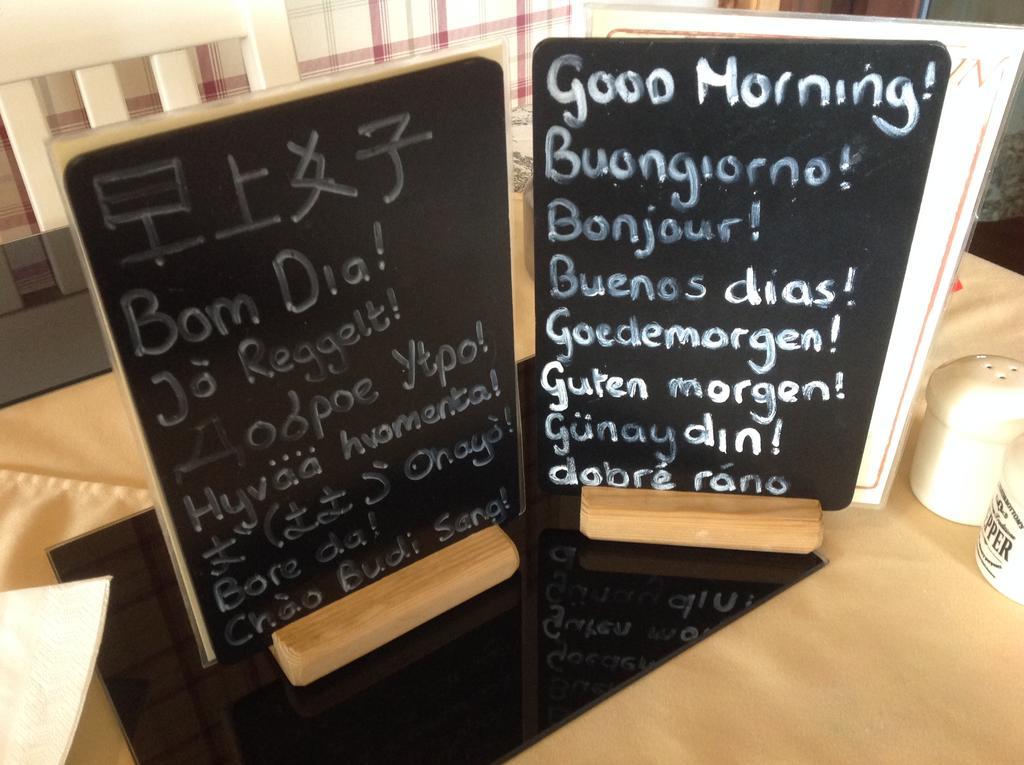 早上女子
Bom Dia!
Jó Reggelt!
Доброе Утро!
Hyvää huomenta!
Onayo!
Bore da!
Chào Budi Sang!
Good Morning!
Buongiorno!
Bonjour!
Buenos dias!
Goedemorgen!
Guten morgen!
Günaydin!
dobré ráno
PPER